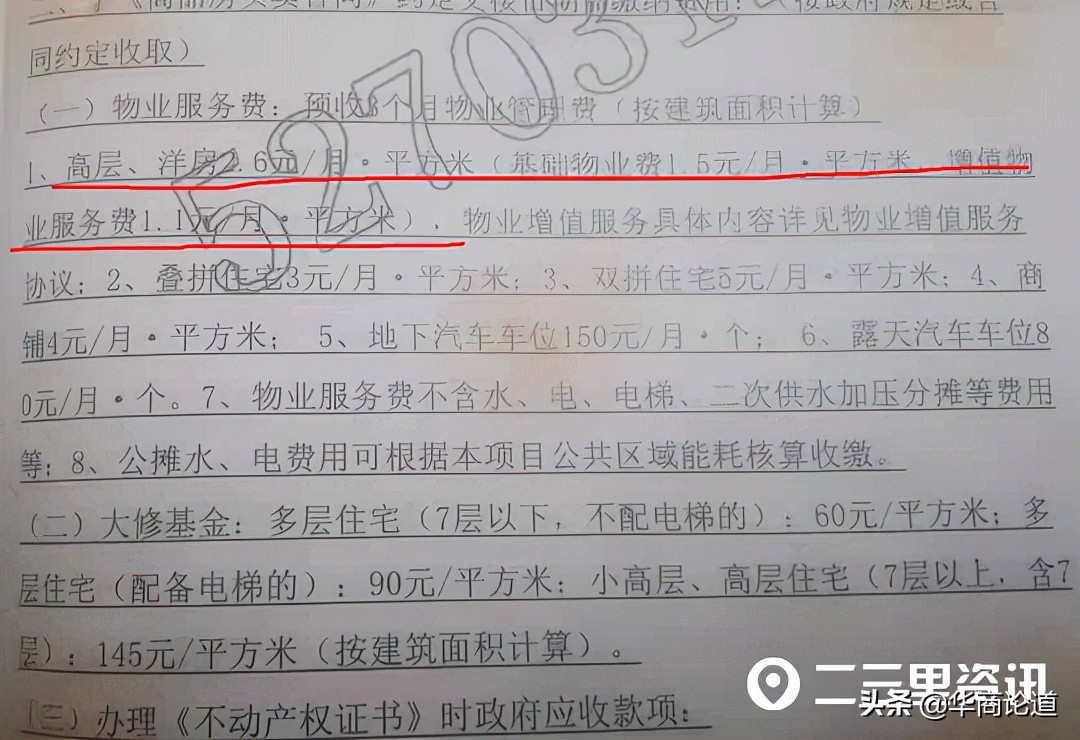 二、于《商品房买卖合同》约定交接
缴纳费用：
按政府规定或合
同约定收取）
（一）物业服务费：预收3个月物业管理费（按建筑面积计算）
1、高层、洋房2.6元/月·平方米（基础物业费1.5元/月·平方米、增值物
业服务费1.1元/月·平方米），物业增值服务具体内容详见物业增值服务
协议；2、叠拼住宅3元/月·平方米；3、双拼住宅5元/月·平方米；4、商
铺4元/月·平方米； 5、地下汽车车位150元/月·个； 6、露天汽车车位8
0元/月·个。7、物业服务费不含水、电、电梯、二次供水加压分摊等费用
等；8、公摊水、电费用可根据本项目公共区域能耗核算收缴。
（二）大修基金：多层住宅（7层以下，不配电梯的）：60元/平方米；多
层住宅（配备电梯的）：90元/平方米；小高层、高层住宅（7层以上，含7
层）：145元/平方米（按建筑面积计算）。
（三）办理《不动产权证书》时政府应收款项：
527031
二三里资讯
头条 @华商论道